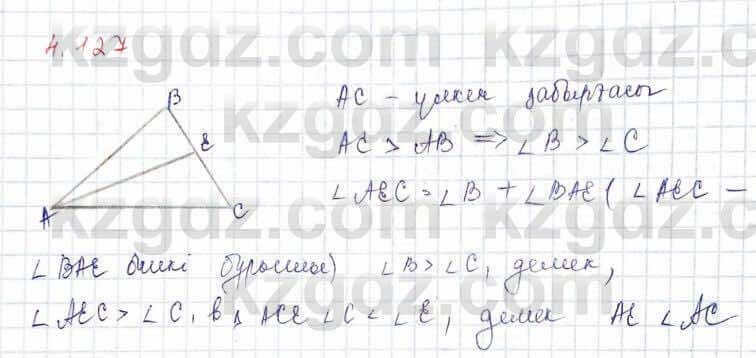 4.127
kzgdz.com kzgdz.com
B
E
A
C
AC – үлкен қабырғасы
AC > AB => ∠B > ∠C
∠AEC = ∠B + ∠BAE ( ∠AEC –
∠BAE бұрышы) ∠B > ∠C, демек,
∠AEC > ∠C, в △ACE ∠C < ∠E, демек AE ∠ AC